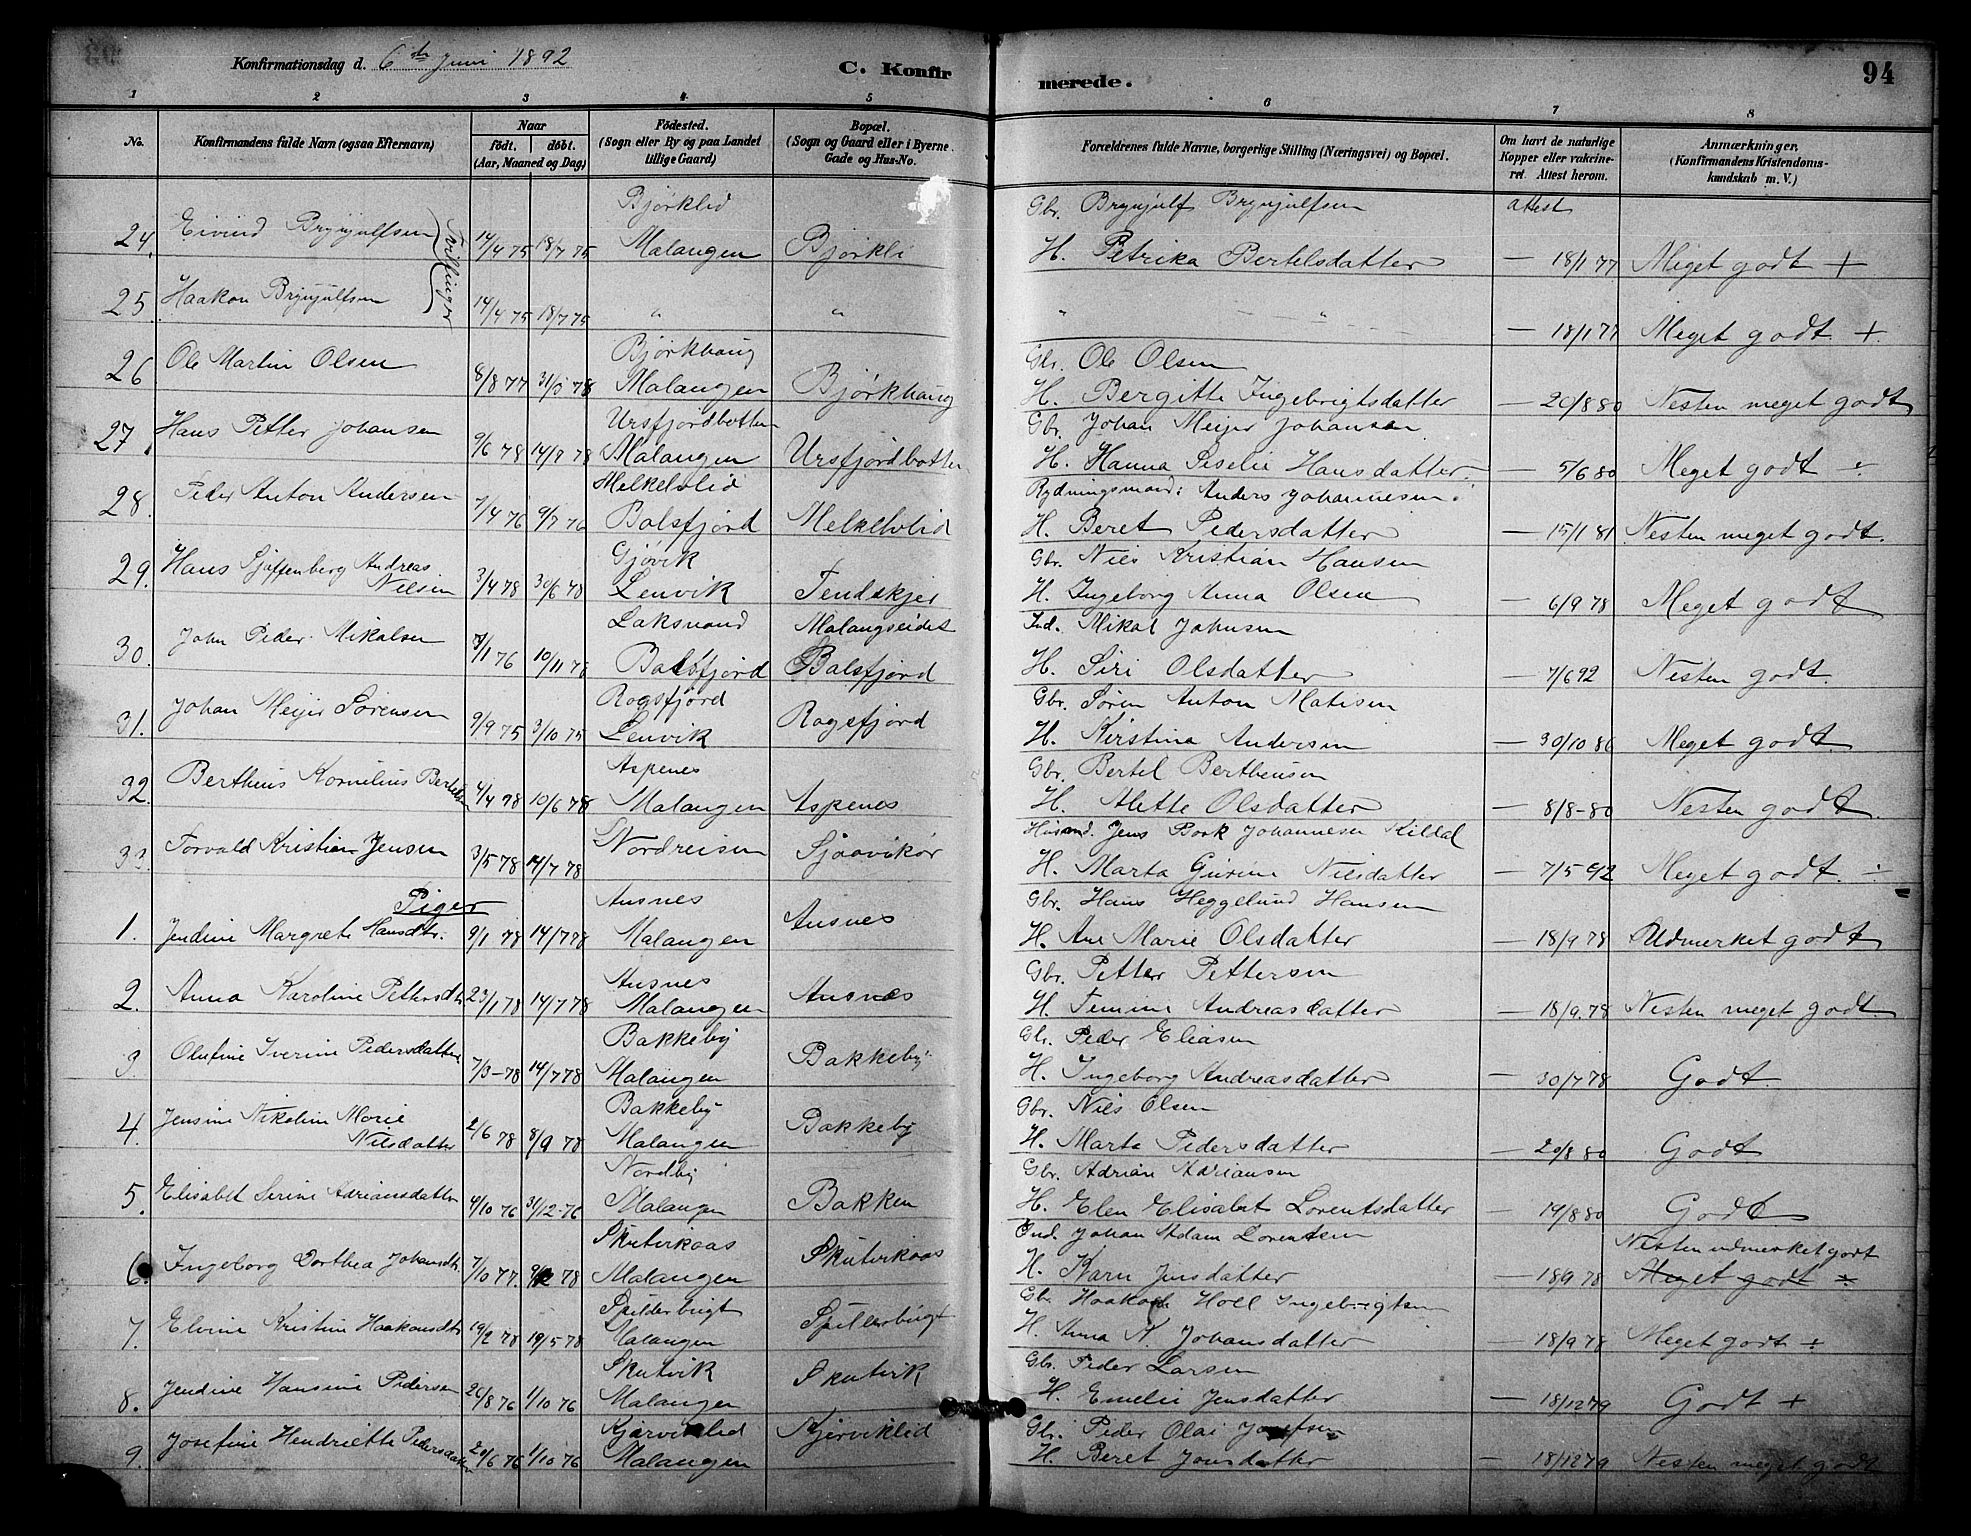 Konfirmationsdag d. 6te Juni 1892
C. Konfirmerede.
94
1 2 3 4 5 6 7 8
No.
Konfirmandens fulde Navn (ogsaa Efternavn)
Naar
født. døbt.
(Aar, Maaned og Dag)
Fødested.
(Sogn eller By og paa Landet
tillige Gaard)
Bopæl.
(Sogn og Gaard eller i Byerne
Gade og Hus-No.
Forældrenes fulde Navne, borgerlige Stilling (Næringsvei) og Bopæl.
Om havt de naturlige
Kopper eller vakcine-
ret. Attest herom.
Anmærkninger.
(Konfirmandens Kristendoms-
kundskab m. V.)
Bjørklid Gbr. Brynjulf Brynjulfsen attest
24. Eivind Brynjulfsen Tvillinger 14/4 75 18/7 75 Malangen Bjørkli H. Petrika Bertelsdatter — 18/1 77 Meget godt +
25. Haakon Brynjulfsen 14/4 75 18/7 75 " " " " — 18/1 77 Meget godt +
Bjørkhaug Gbr. Ole Olsen
26 Ole Martin Olsen 8/8 77 Malangen Bjørkhaug H. Bergitte Ingebrigtsdatter — 20/8 80 Nesten meget godt
Ursfjordbotten Gbr. Johan Meyer Johansen
27. Hans Petter Johansen 9/6 78 Malangen Ursfjordbotten H. Hanna Giselie Hansdatter — 5/6 80 Meget godt ÷
Melkelvlid Rydningsmand: Anders Johannesen
28. Peder Anton Andersen 7/4 76 9/7 76 Balsfjord Melkelvlid H. Beret Pedersdatter — 15/1 81 Nesten meget godt.
Gjøvik Gbr. Nils Kristian Hansen
29. Hans Andreas
Nilsen 3/4 78 30/6 78 Lenvik Tendskjer H. Ingeborg Anna Olsen — 6/9 78 Meget godt
Laksvand Malangseidet Ind. Mikal Johnsen
30. John Peder Mikalsen 10/11 76 Balsfjord Balsfjord H. Siri Olsdatter — 7/6 92 Nesten godt.
Rogsfjord Gbr. Søren Anton Matisen
31. Johan Meyer Sørensen 9/9 75 3/10 75 Lenvik Rogsfjord H. Kirstina Andersen — 30/10 80 Meget godt
Aspenes Gbr. Bertel Bertheusen
32. Bertheus Kornelius Bertelsen 4/4 78 10/6 78 Malangen Aspenes H. Alette Olsdatter — 8/8-80 Nesten godt
Husmd. Jens Rork Johannesen Kildal
33. Torvald Kristian Jensen 3/5 78 14/7 78 Nordreisen Sjaavikør H. Marta Gurine Nilsdatter — 7/5 92 Meget godt. ÷
Piger Ansnes Gbr. Hans Heggelund Hansen
1. Jendine Margrete Hansdtr. 9/1 78 14/7 78 Malangen Ansnes H. Ane Marie Olsdatter — 18/9 78 Udmerket godt
Ansnes Gbr. Petter Pettersen
2. Anna Karoline Pettersdtr 23/1 78 14/7 78 Malangen Ansnæs H. Temine Andreasdatter — 18/9.78 Nesten meget godt.
Bakkeby Gbr. Peder Eliasen
3. Olufine Iverine Pedersdatter 7/3-78 14/7 78 Malangen Bakkeby H. Ingeborg Andreasdatter — 30/7 78 Godt.
Bakkeby Gbr. Nils Olsen
4. Jensine Nikoline Marie
Nilsdatter 2/6 78 8/9 78 Malangen Bakkeby H. Marta Pedersdatter — 20/8 80 Godt
Nordby Gbr. Adrian Adriansen
5. Elisabet Serine Adriansdatter 4/10 76 31/12-76 Malangen Bakken H. Elen Elisabet Lorentsdatter — 19/8 80 Godt
Skutvikaas Ind. Johan Adam Lorentsen Nesten udmerket godt
6. Ingeborg Dorthea Johansdtr. 7/10 77. Malangen Skutvikaas H. Karn Jensdatter — 18/9 78 Meget godt ÷
Spilderbugt Gbr. Haakon Holl Ingebrigtsen
7. Elvine Kristine Haakonsdtr 19/2 78 19/5 78 Malangen Spillerbugt H. Anna N. Johansdatter — 18/9 78 Meget godt ÷
Skutvik Gbr. Peder Larsen
8. Jendine Hansine Pedersen 26/8 76 1/10 76 Malangen Skutvik H. Emelie Jensdatter — 18/12 79 Godt +
Kjærviklid Gbr. Peder Olai Josefsen
9. Josefine Hendriette Pedersdatter 20/6 76 1/10 76 Malangen Kjerviklid H. Beret Jonsdatter — 18/12 79 Nesten meget godt